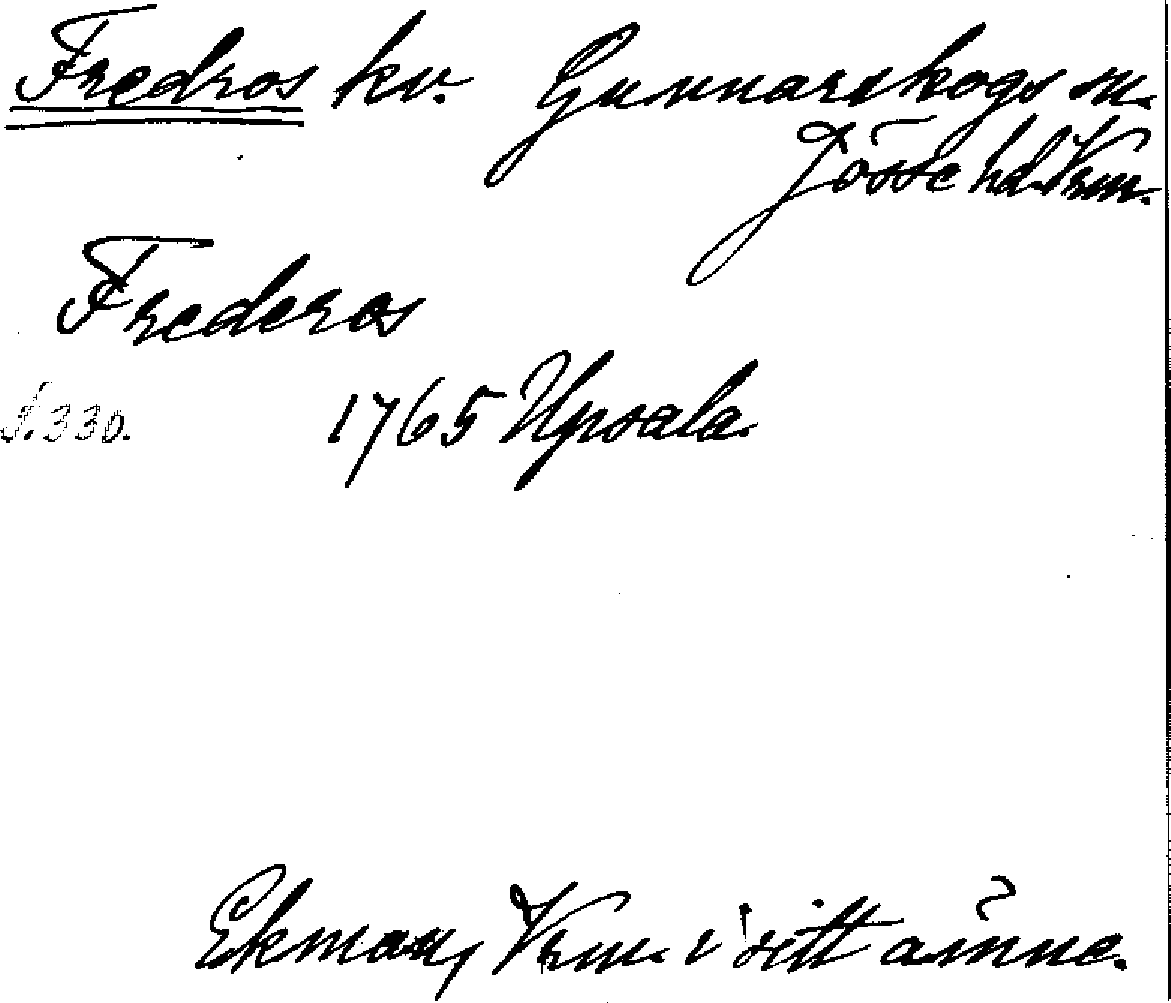 Fredros kv. Gunnarskogs sn.
Jösse hd. Vrm.
Frederos
S. 330. 1765 Upsala.
Ekman, Vrm. i sitt ämne.